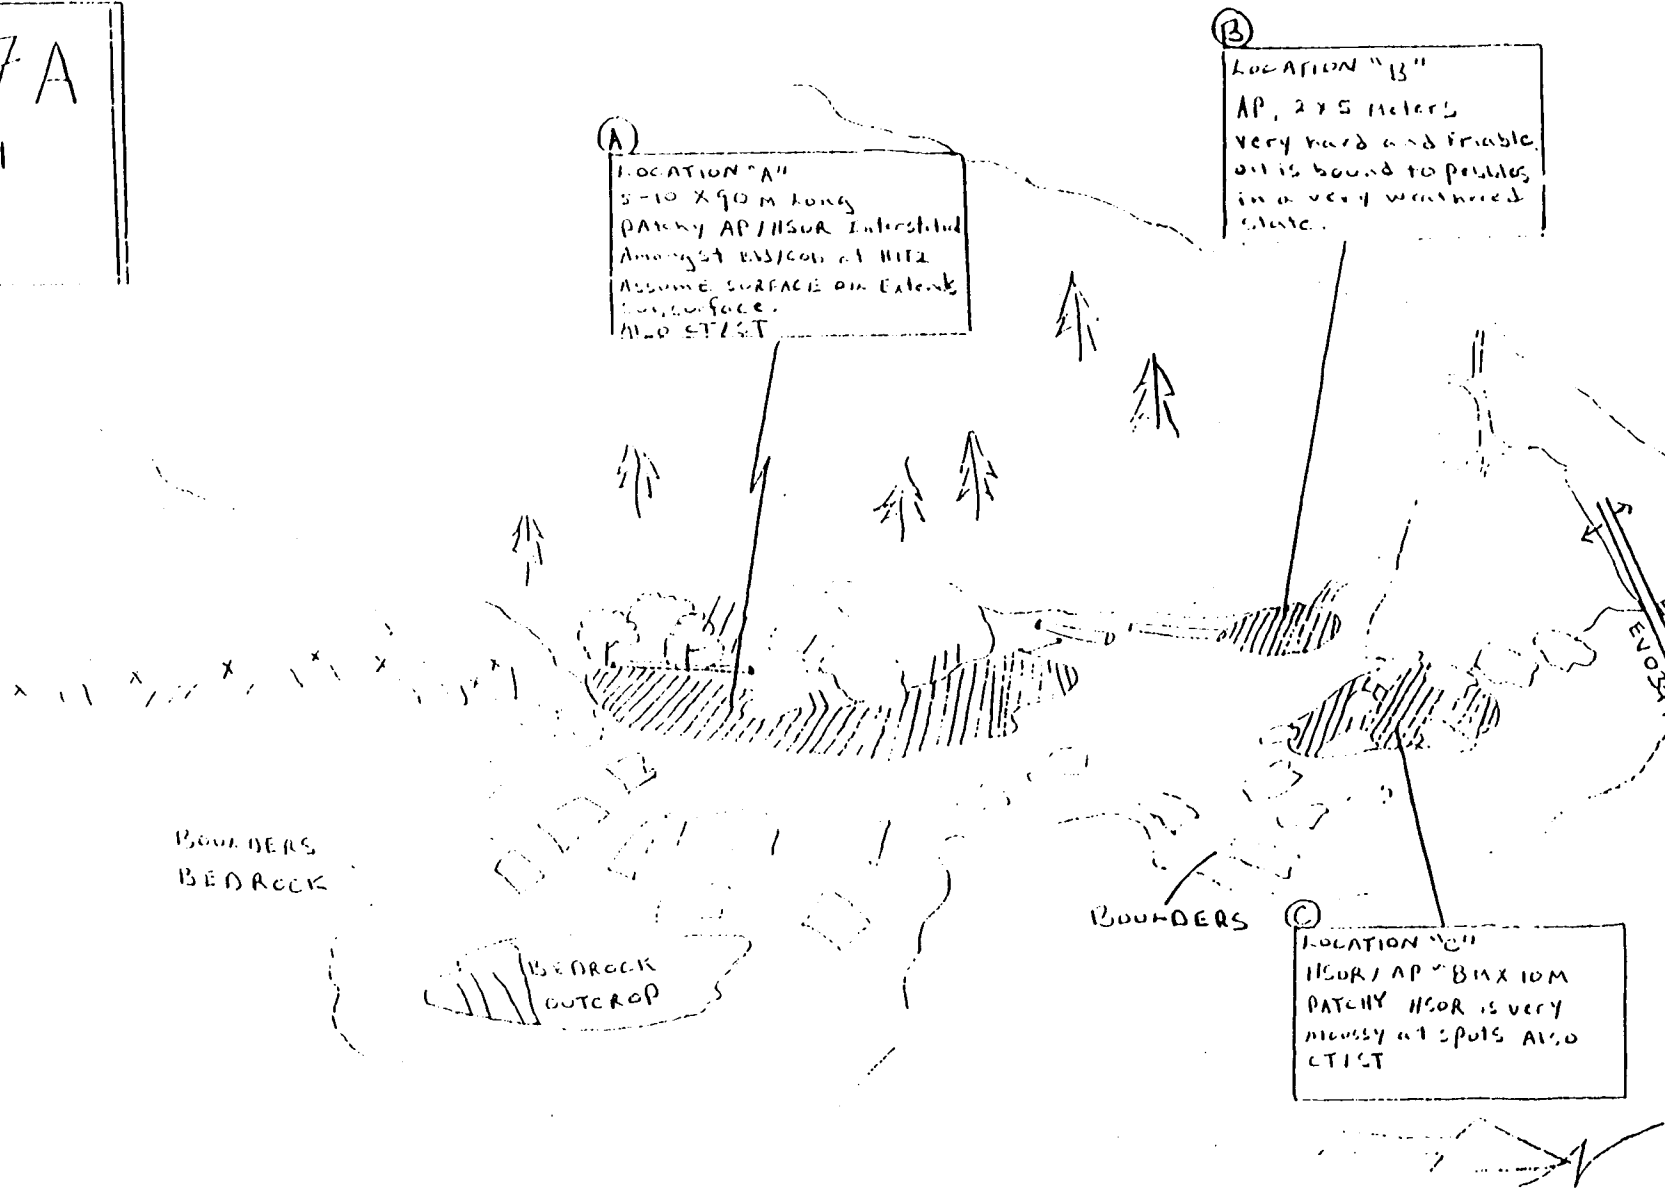 7A
A
LOCATION "A"
5-10 X 90 M Long
PAtchy AP/HSOR Interstitial
Amongst at
ASSUME SURFACE Oil Extends
Subsurface.
Also CT/ST
B
LOCATION "B"
AP, 2 x 5 Meters
very hard and friable.
oil is bound to pebbles
in a very weathered
state.
BOULDERS
BEDROCK
BEDROCK
OUTCROP
BOULDERS
C
LOCATION "C"
HSOR/AP ~8M X 10M
PATCHY HSOR is very
moussy at spots Also
CT/ST
N